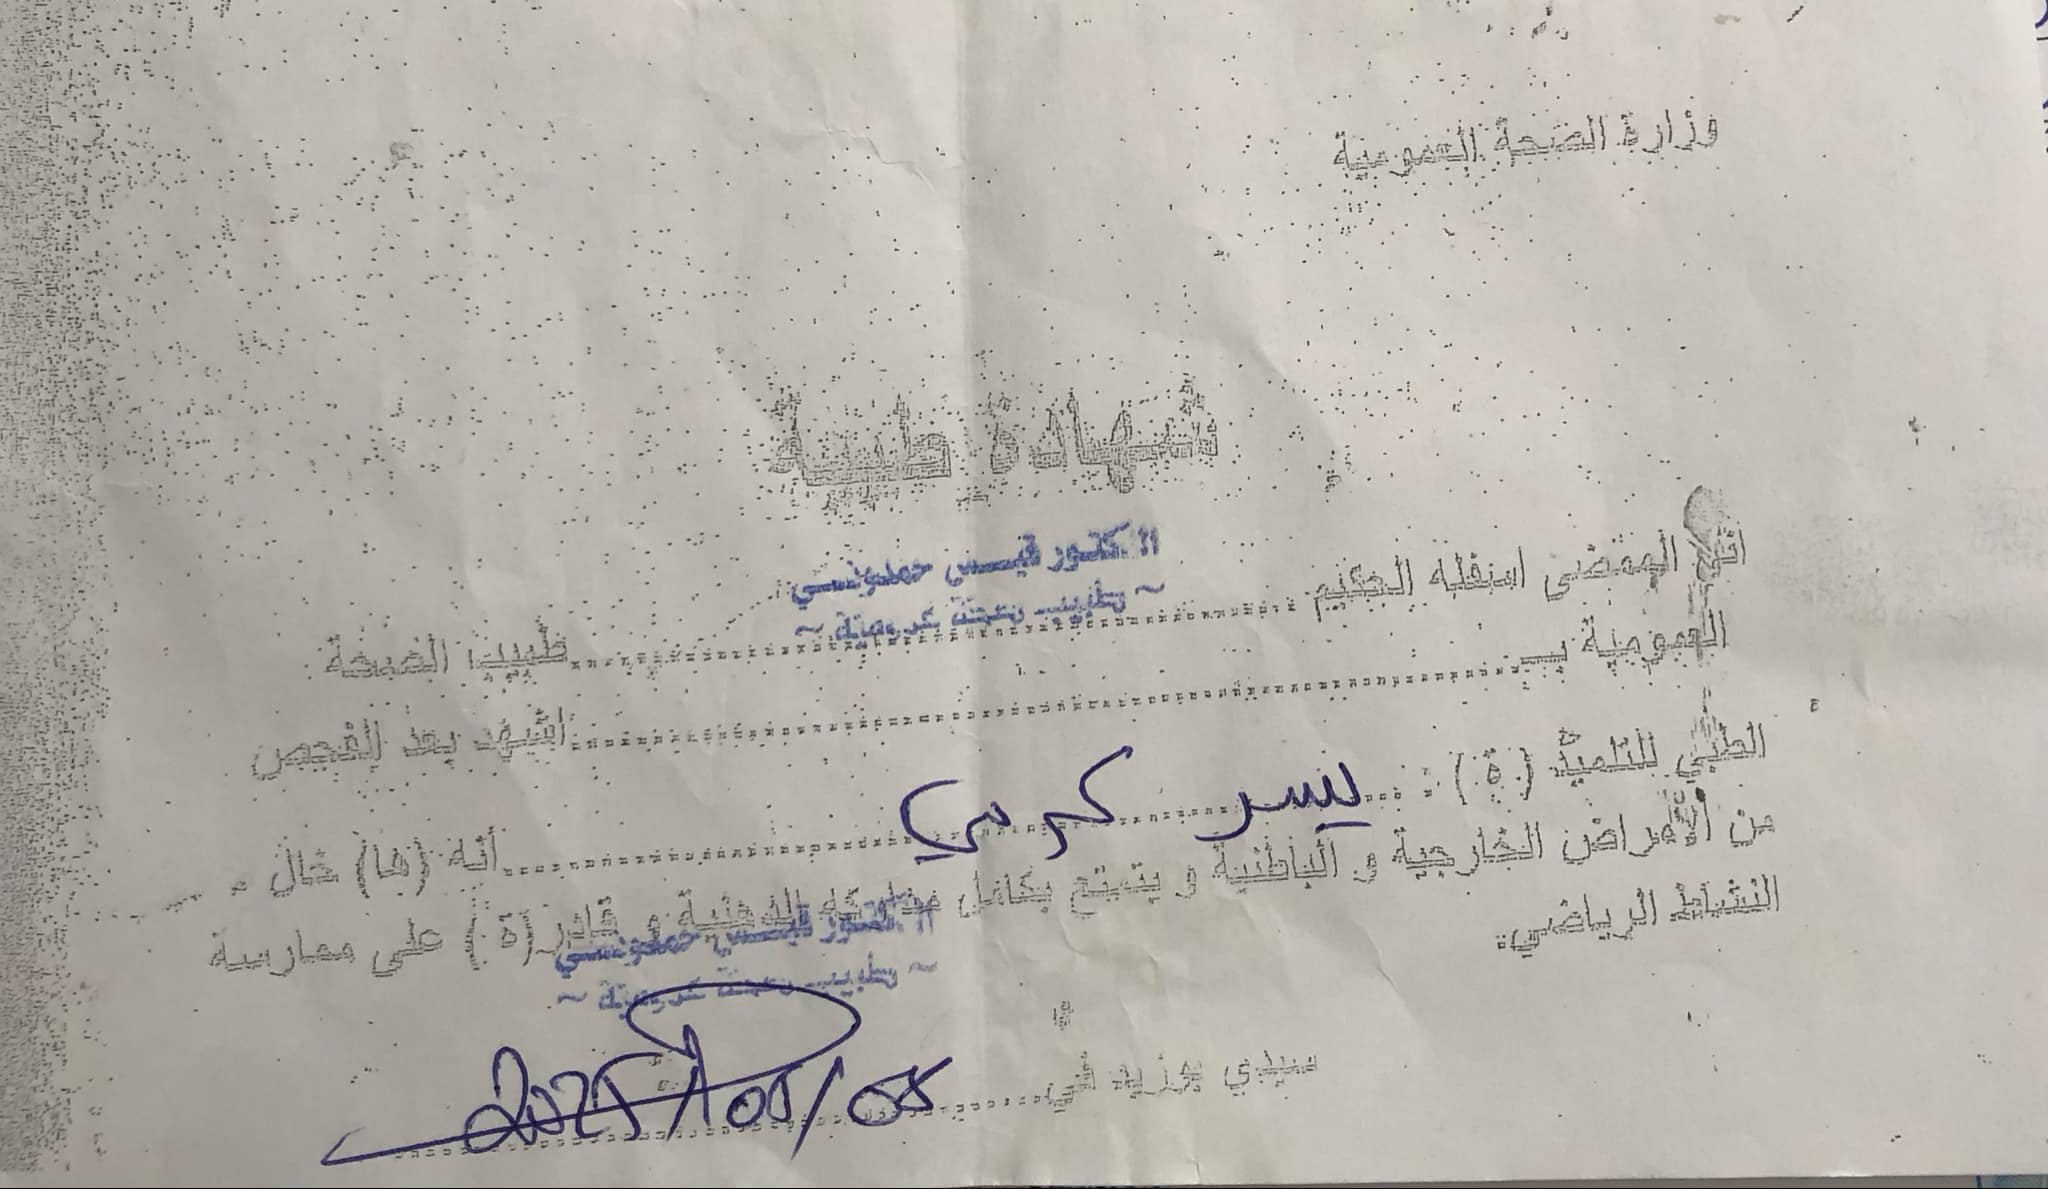 وزارة الصحة العمومية
شهادة طبية
الدكتور قيس حمدونسي
~ طبيب صحة عمومية ~
اني الممضى اسفله الحكيم ........ طبيب الصحة
العمومية بـ ........ اشهد بعد الفحص
الطبي للتلميذ (ة) : يسر كرمي ........ أنه (ها) خال
من الأمراض الخارجية و الباطنية و يتمتع بكامل مداركه الذهنية و قادر (ة) على ممارسة
النشاط الرياضي.
الدكتور قيس حمدونسي
~ طبيب صحة عمومية ~
سيدي بوزيد في ........ 2025/05/05